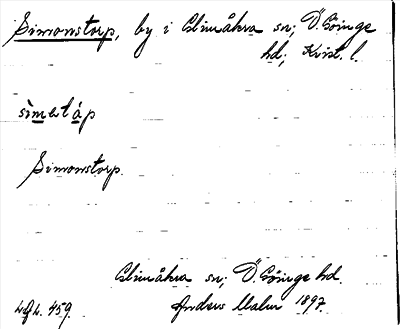 Simonstorp, by i Glimåkra sn; Ö. Göinge
hd; Krist. l.
Simonstorp.
Glimåkra sn; Ö. Göinge hd.
459. Anders Malm 1897